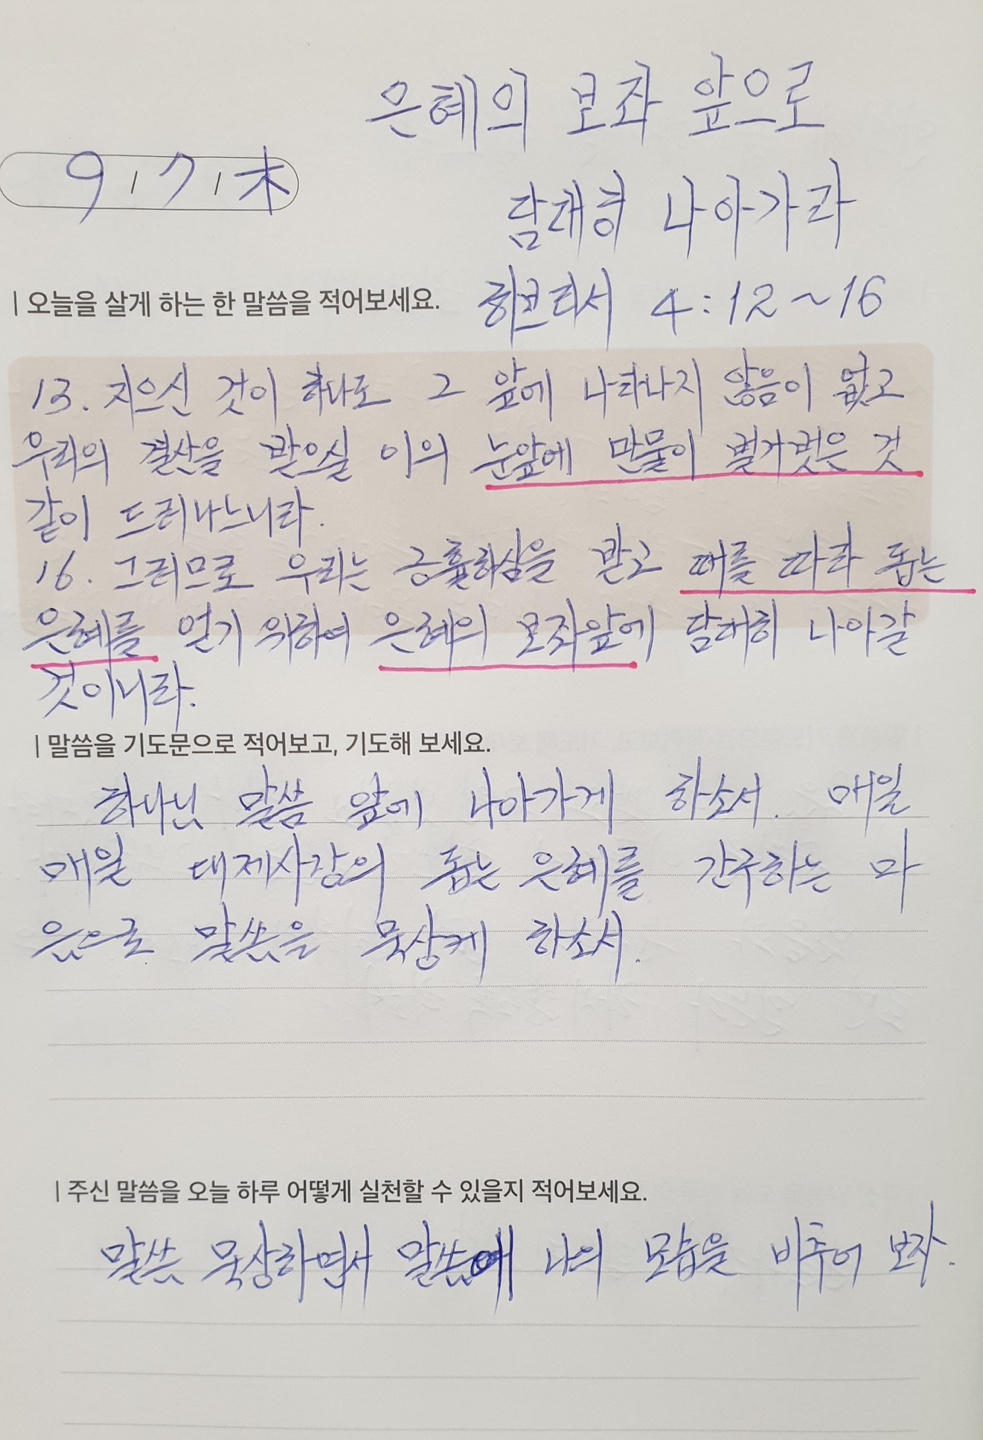 은혜의 보좌 앞으로
9 / 7 / 木
담대히 나아가라
| 오늘을 살게 하는 한 말씀을 적어보세요.
히브리서 4:12~16
13. 지으신 것이 하나도 그 앞에 나타나지 않음이 없고
우리의 결산을 받으실 이의 눈앞에 만물이 벌거벗은 것
같이 드러나느니라.
16. 그러므로 우리는 긍휼하심을 받고 때를 따라 돕는
은혜를 얻기 위하여 은혜의 보좌앞에 담대히 나아갈
것이니라.
| 말씀을 기도문으로 적어보고, 기도해 보세요.
하나님 말씀 앞에 나아가게 하소서. 매일
매일 대제사장의 돕는 은혜를 간구하는 마
음으로 말씀을 묵상케 하소서.
| 주신 말씀을 오늘 하루 어떻게 실천할 수 있을지 적어보세요.
말씀 묵상하면서 말씀에 나의 모습을 비추어 보자.